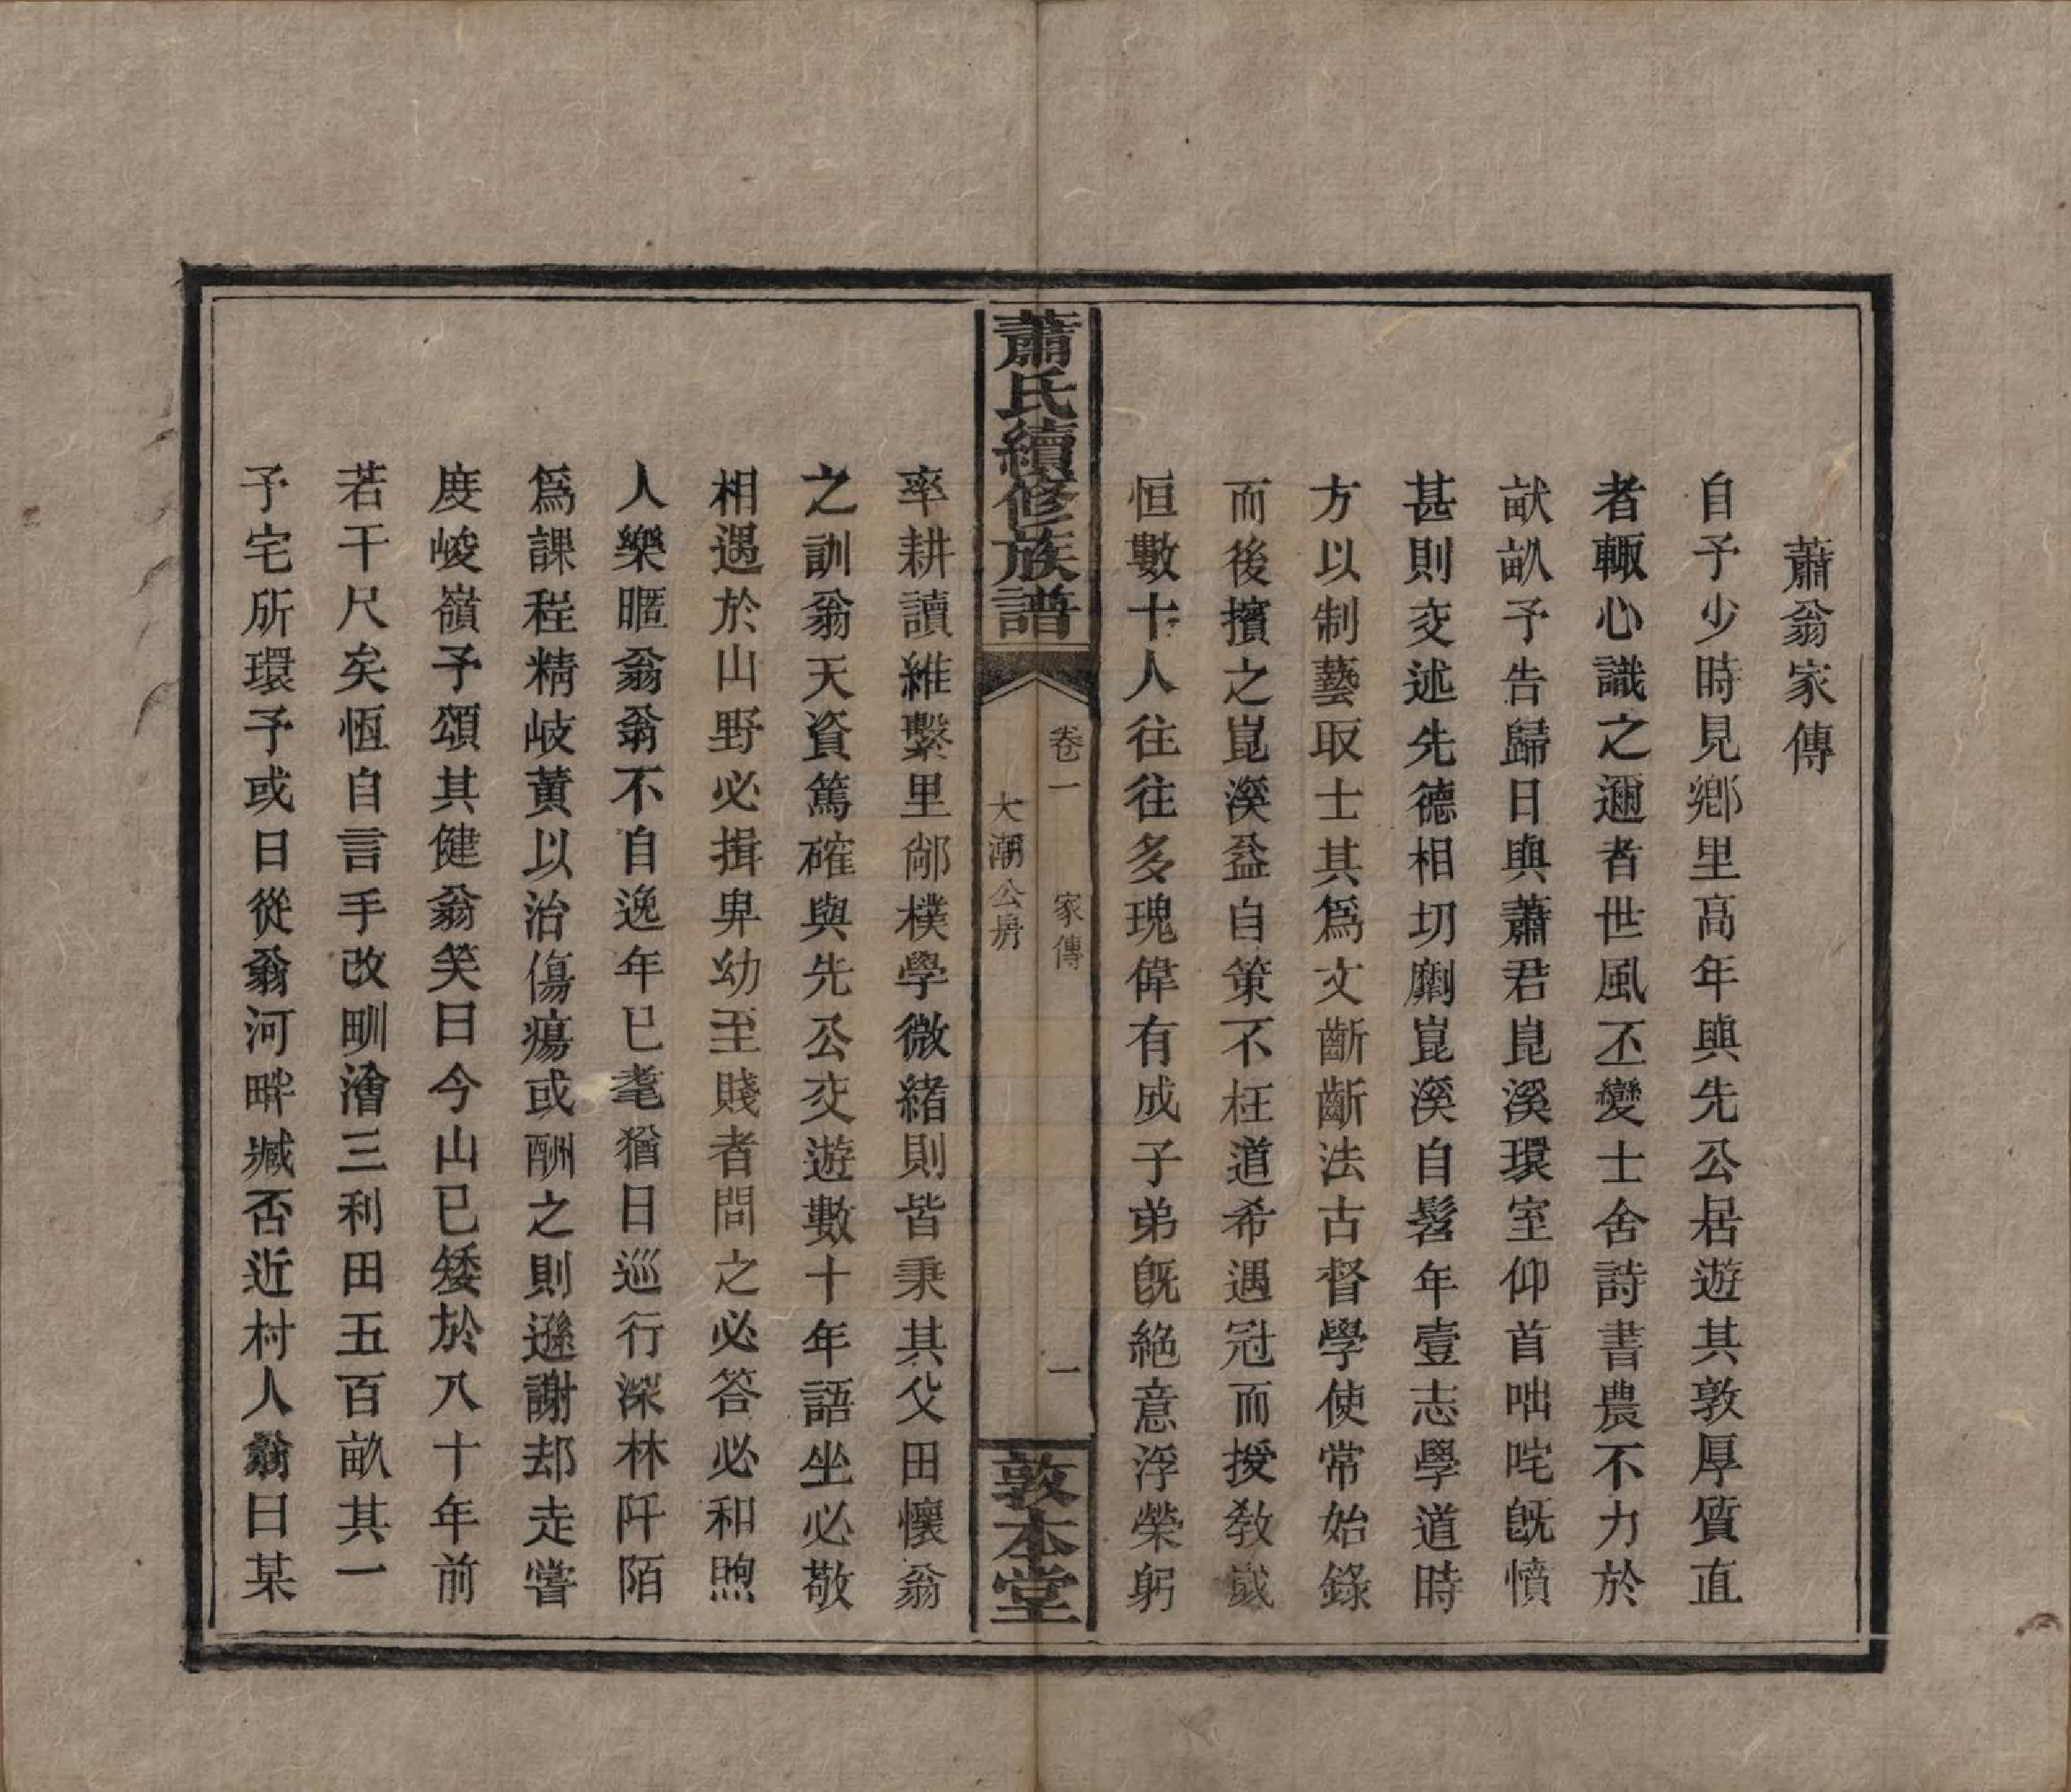 蕭翁家傳
自予少時見鄉里高年與先公居遊其敦厚質直
者輒心識之邇者世風丕變士舍詩書農不力於
畎畝予告歸日與蕭君崑溪環室仰首咄咤旣憤
甚則交述先德相切劘崑溪自髫年壹志學道時
方以制藝取士其爲文齗齗法古督學使常始錄
而後擯之崑溪益自策不枉道希遇冠而授教歲
恒數十人往往多瑰偉有成子弟旣絶意浮榮躬
蕭氏續修族譜
卷一 家傳 一
大潮公房
敦本堂
率耕讀維繫里鄉樸學微緒則皆秉其父田懷翁
之訓翁天資篤確與先公交遊數十年語坐必敬
相遇於山野必揖卑幼至賤者問之必答必和煦
人樂暱翁翁不自逸年已耄猶日巡行深林阡陌
爲課程精岐黃以治傷瘍或酬之則遜謝却走嘗
度峻嶺予頌其健翁笑曰今山已矮於八十年前
若干尺矣恆自言手改甽澮三利田五百畝其一
予宅所環予或日從翁河畔臧否近村人翁曰某